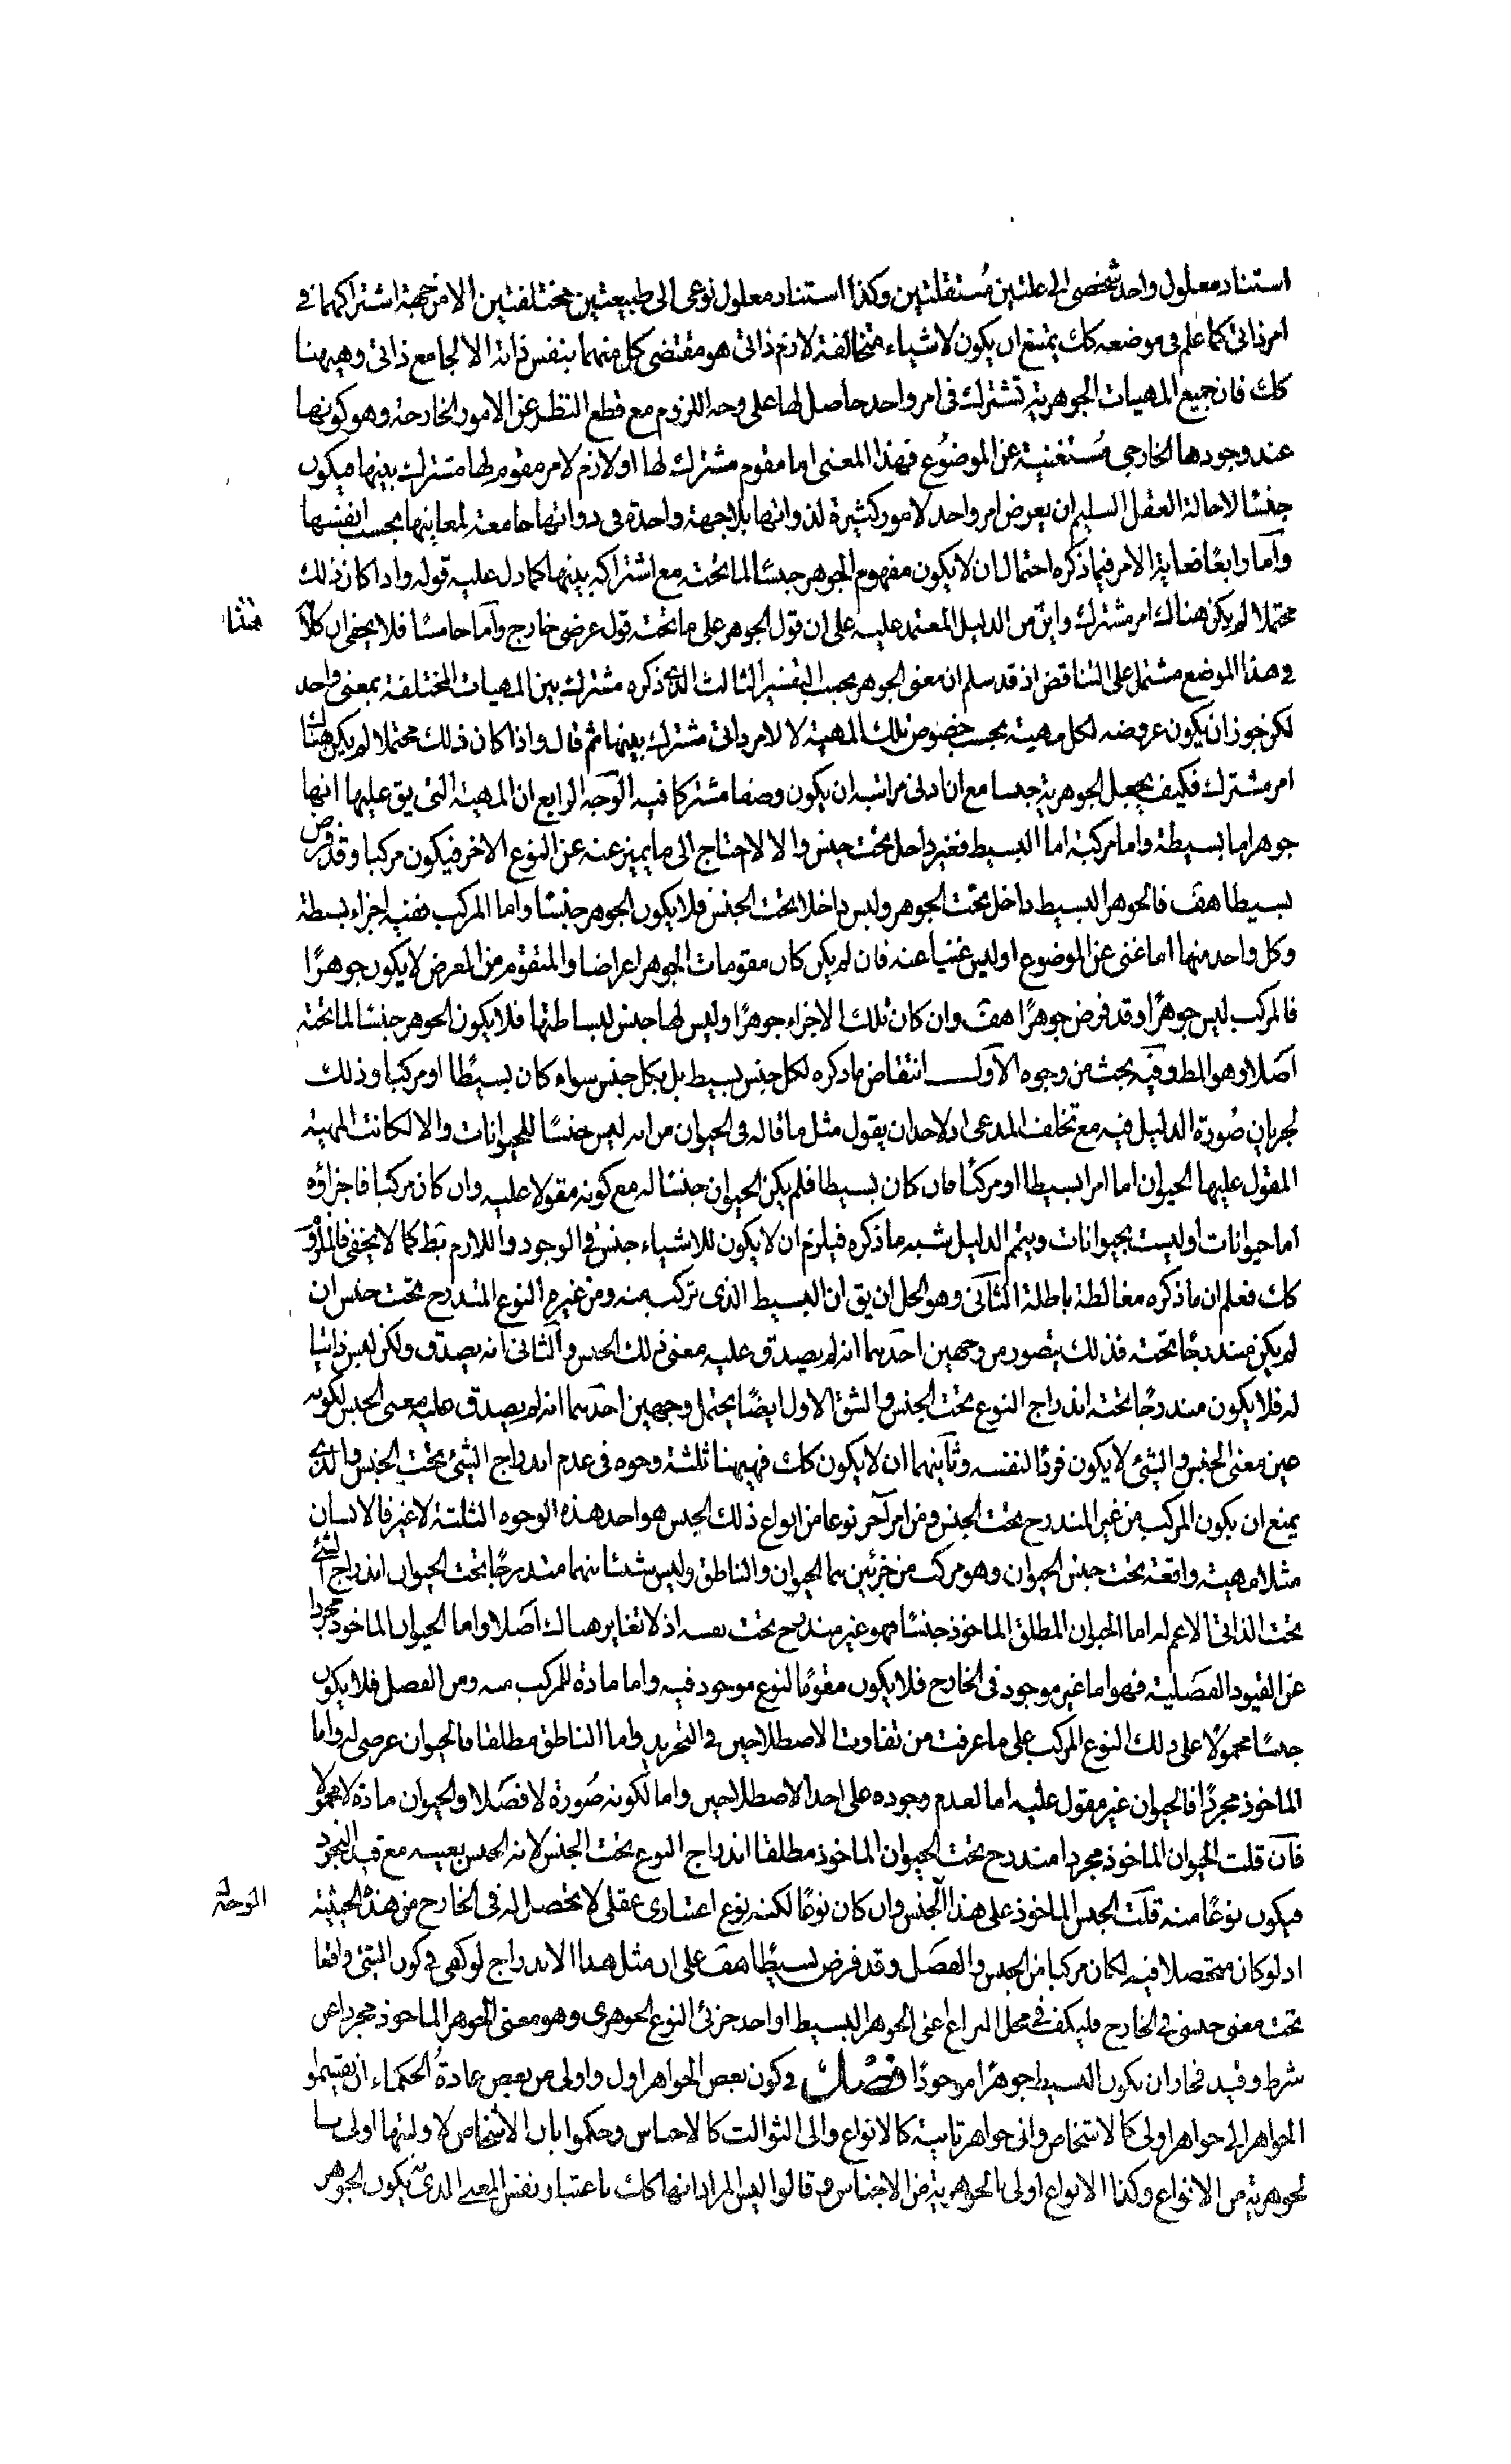 استناد معلول واحد شخصى الى علتين مُستقلتين وكذا استناد معلول نوعى الى طبيعتين مختلفتين الا من جهة اشتراكهما فى
امر ذاتى كما علم فى موضعه كك يمتنع ان يكون لاشياء متخالفة لازم ذاتى هو مقتضى كل منهما بنفس ذاته الا لجامع ذاتى وهيهنا
كك فان جميع المهيات الجوهرية تشترك فى امر واحد حاصل لها على وجه اللزوم مع قطع النظر عن الامور الخارجة وهو كونها
عند وجودها الخارجى مُستغنية عن الموضوُع فهذا المعنى اما مقوم مشترك لها او لازم لامر مقوم لها مشترك بينها فيكون
جنسًا لاحالة العقل السليم ان يعرض امر واحد لامور كثيرة لذواتها بلا جهة واحدة فى ذواتها جامعة لمعانيها بحسب انفسها
وآما رابعًا فغاية الامر فيما ذكره احتمال ان لا يكون مفهوم الجوهر جنسًا لما تحته مع اشتراكه بينها كما دل عليه قوله واذا كان ذلك
محتملا لم يكن هناك امر مشترك واين من الدليل المعتمد عليه على ان قول الجوهر على ما تحته قول عرضى خارج وآما خامسًا فلا يخفى ان كلامه
فى هذا الموضع مشتمل على التناقض اذ قد سلم ان معنى الجوهر بحسب التفسير الثالث الذى ذكره مشترك بين المهيات المختلفة بمعنى واحد
لكن جوز ان يكون عروضه لكل مهية بحسب خصوص تلك المهية لا لامر ذاتى مشترك بينها ثم قال واذا كان ذلك محتملا لم يكن هناك
امر مشترك فكيف يجعل الجوهرية جنسا مع ان ادنى مراتبه ان يكون وصفا مشتركا فيه الوَجه الرابع ان المهية التى يق عليها انها
جوهر اما بسيطة واما مركبة اما البسيط فغير داخل تحت جنس والا لاحتاج الى ما يميز عنه عن النوع الاخر فيكون مركبا وقد فرض
بسيطا هف فالجوهر البسيط داخل تحت الجوهر وليس داخلا تحت الجنس فلا يكون الجوهر جنسًا واما المركب ففيه اجزاء بسطة
وكل واحد منها اما غنى عن الموضوع او ليس غنيا عنه فان لم يكن كان مقومات الجوهر اعراضا والمتقوم من العرض لا يكون جوهرًا
فالمركب ليس جوهرًا وقد فرض جوهرًا هف وان كان تلك الاجزاء جوهرًا وليس لها جنس لبساطتها فلا يكون الجوهر جنسًا لما تحته
اصَلا وهو المط وفيَه بحث من وجوه الآول انتقاض ما ذكره لكل جنس بسيط بل بكل جنس سواء كان بسيطًا او مركبا وذلك
لجريان صُورة الدليل فيه مع تخلف المدعى اذ لاحد ان يقول مثل ما قاله فى الحيوان من انه ليس جنسًا للحيوانات والا لكانت المهية
المقول عليها الحيوان اما امرا بسيطا او مركبًا فان كان بسيطا فلم يكن الحيوان جنسًا له مع كونه مقولا عليه وان كان مركبا فاجزاؤه
اما حيوانات او ليست بحيوانات ويتم الدليل شبه ما ذكره فيلزم ان لا يكون للاشياء جنس فى الوجود واللازم بَط كما لا يخفى فالملزوَم
كك فعلم ان ما ذكره مغالطة باطلة الثاَنى وهو الحل ان يق ان البسيط الذى تركب منه ومن غيره النوع المندرج تحت جنس ان
لم يكن مندرجًا تحته فذلك يتصور من وجهين احدَهما انه لم يصدق عليه معنى ذلك الجنس وآلثانى انه يصدق ولكن ليس ذاتيا
له فلا يكون مندرجًا تحته اندراج النوع تحت الجنس والشق الاول ايضًا يحتمل وجهين احدَهما انه لم يصدق عليه معنى الجنس لكونه
عين معنى الجنس والشئ لا يكون فردًا لنفسه وثاَنيهما ان لا يكون كك فهيهنا ثلثة وجوه فى عدم اندراج الشئ تحت الجنس والذى
يمنع ان يكون المركب من غير المندرج تحت الجنس ومن امر آخر نوعا من انواع ذلك الجنس هو احد هذه الوجوه الثلثة لا غير فالانسان
مثلا مهية واقعة تحت جنس الحيوان وهو مركب من جزئين هما الحيوان والناطق وليس شئ منهما مندرجًا تحت الحيوان اندراج الشئ
تحت الذاتى الاعم له اما الحيوان المطلق الماخوذ جنسًا فهو غير مندرج تحت نفسه اذ لا تغاير هناك اصَلا واما الحيوان الماخوذ مجردا
عن القيود الفصَلية فهو اما غير موجود فى الخارج فلا يكون مقومًا لنوع موجود فيه واما مادة للمركب منه ومن الفصل فلا يكون
جنسًا محمولًا على ذلك النوع المركب على ما عرفت من تفاوت الاصطلاحين فى التجريد واما الناطق مطلقا فالحيوان عرضى له واما
الماخوذ مجردًا فالحيوان غير مقول عليه اما لعدم وجوده على احد الاصطلاحين واما لكونه صُورة لا فصَلا والحيوان مادة لا محمولا
فآن قلت الحيوان الماخوذ مجردا مندرج تحت الحيوان الماخوذ مطلقا اندراج النوع تحت الجنس لانه الجنس بعينه مع قيد التجرد
فيكون نوعًا منه قلَت الجنس الماخوذ على هذا الجنس وان كان نوعًا لكنه نوع اعتبارى عقلى لا تحصل له فى الخارج من هذه الحيثية
اذ لو كان متحصلا فيه لكان مركبا من الجنس والفصَل وقد فرض بسيطًا هف على ان مثل هذا الاندراج لو كفى فى كون الشئ واقعا
تحت معنى جنسى فى الخارج فليكف فى محل النزاع اعنى الجوهر البسيط او احد جزئى النوع الجوهرى وهو معنى الجوهر الماخوذ مجردا عن
شرط وقيد فجاز ان يكون البسيط جوهرًا موجودًا فصْل فى كون بعض الجواهر اول واولى من بعض عادةُ الحكماء ان يقسموا
الجواهر الى جواهر اولى كالاشخاص والى جواهر ثانية كالانواع والى الثوالث كالاجناس وحكموا بان الاشخاص لاوليتها اولى بـا
لجوهرية من الانواع وكذا الانواع اولى بالجوهرية من الاجناس وقالوا ليس المراد انها كك باعتبار نفس المعنى الذى يكون الجوهر